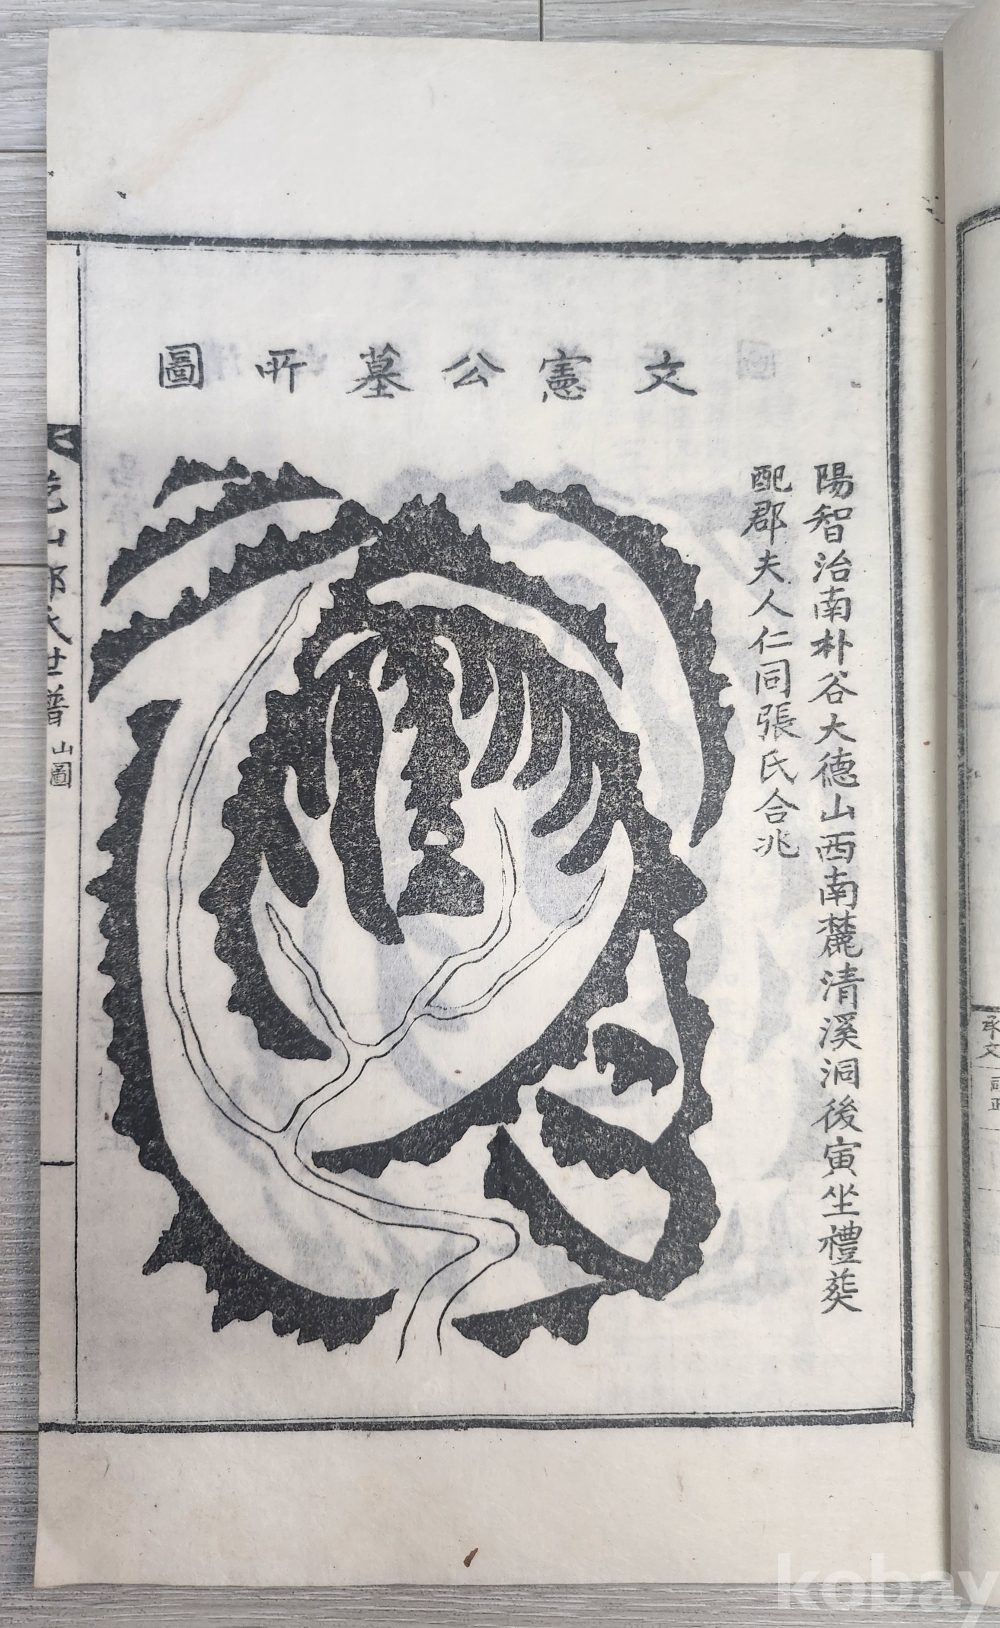 文憲公墓所圖
陽智治南朴谷大德山西南麓清溪洞後寅坐禮葬
配郡夫人仁同張氏合兆
山
氏世譜 山圖
kobay